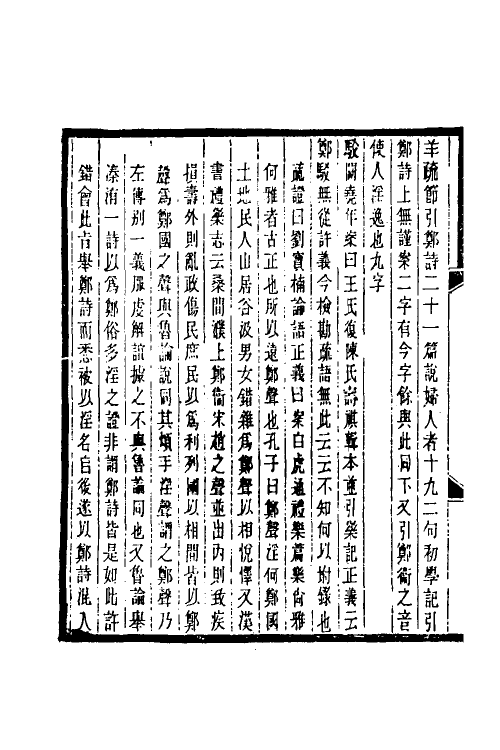 羊疏節引鄭詩二十一篇說婦人者十九二句初學記引
鄭詩上無謹案二字有今字餘與此同下又引鄭衛之音
使人淫逸也九字
駁闕堯年案曰王氏復陳氏壽祺輯本並引樂記正義云
鄭駁無從許義今檢勘疏語無此云云不知何以坿錄也
疏證曰劉寶楠論語正義曰案白虎通禮樂篇樂尚雅
何雅者古正也所以遠鄭聲也孔子曰鄭聲淫何鄭國
土地民人山居谷汲男女錯雜爲鄭聲以相悅懌又漢
書禮樂志云桑間濮上鄭衛宋趙之聲並出內則致疾
損壽外則亂政傷民庶民以爲利列國以相間皆以鄭
聲爲鄭國之聲與魯論說同其煩手淫聲謂之鄭聲乃
左傳別一義服虔解誼據之不與魯論同也又魯論舉
溱洧一詩以爲鄭俗多淫之證非謂鄭詩皆是如此許
錯會此旨舉鄭詩而悉被以淫名自後遂以鄭詩混入